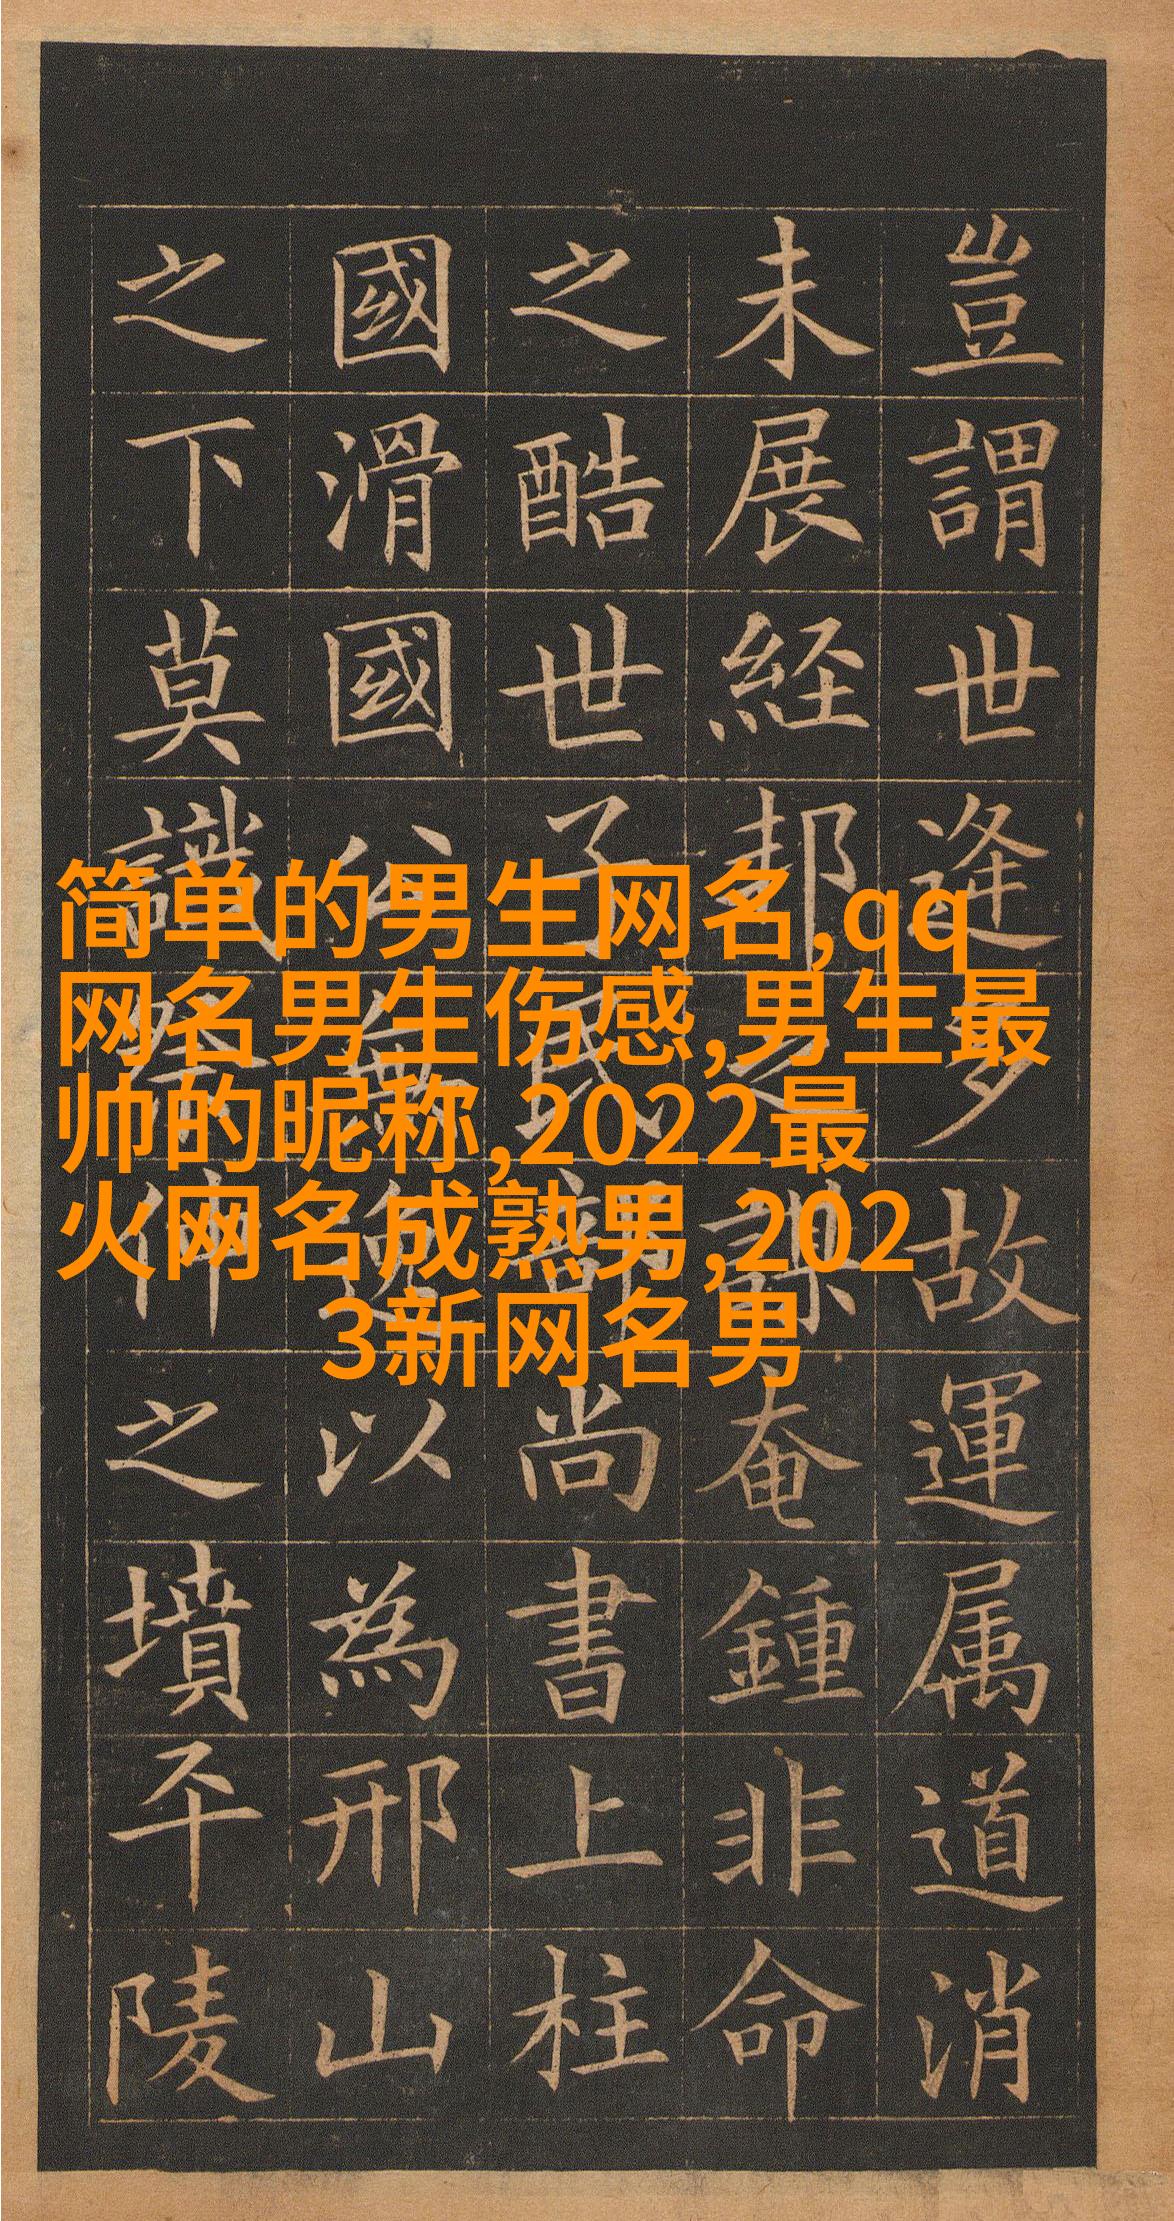 简单的男生网名,qq
网名男生伤感,男生最
帅的昵称,2022最
火网名成熟男,202
3新网名男
豈謂世逢多故運属道消
未展経邦之謀奄鍾非命
之酷世子民部尚書上柱
國滑國公無逸以為邢山
之下莫識祭仲之墳平陵